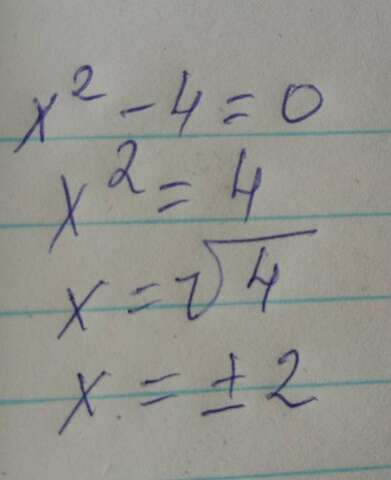 x² - 4 = 0
x² = 4
x = √4
x = ± 2